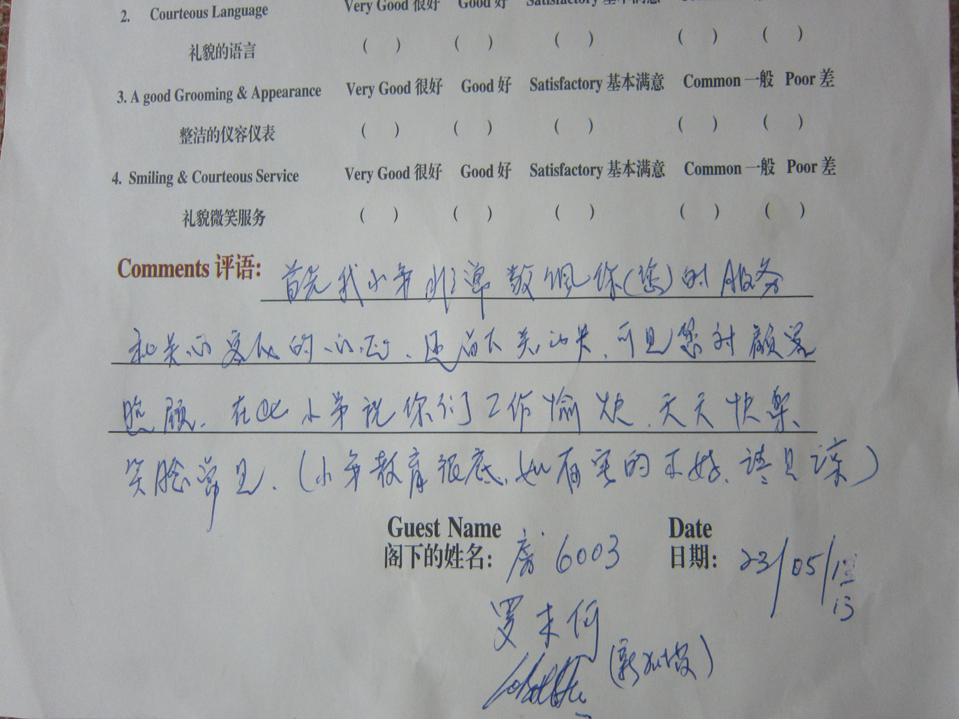 2. Courteous Language Very Good 很好 Good 好 Satisfactory 基本满意 Common 一般
礼貌的语言 ( ) ( ) ( ) ( ) ( )
3. A good Grooming & Appearance Very Good 很好 Good 好 Satisfactory 基本满意 Common 一般 Poor 差
整洁的仪容仪表 ( ) ( ) ( ) ( ) ( )
4. Smiling & Courteous Service Very Good 很好 Good 好 Satisfactory 基本满意 Common 一般 Poor 差
礼貌微笑服务 ( ) ( ) ( ) ( ) ( )
Comments 评语: 首先我小弟非常敬佩你(您)的服务
和关心客人的 可见您对顾客
照顾. 在 小弟祝你们工作愉快、天天快樂、
笑脸常见. (小弟教育很底, 如有写的不好, 请見谅)
Guest Name Date
阁下的姓名: 房 6003 日期: 23/05/13
罗 (新加坡)